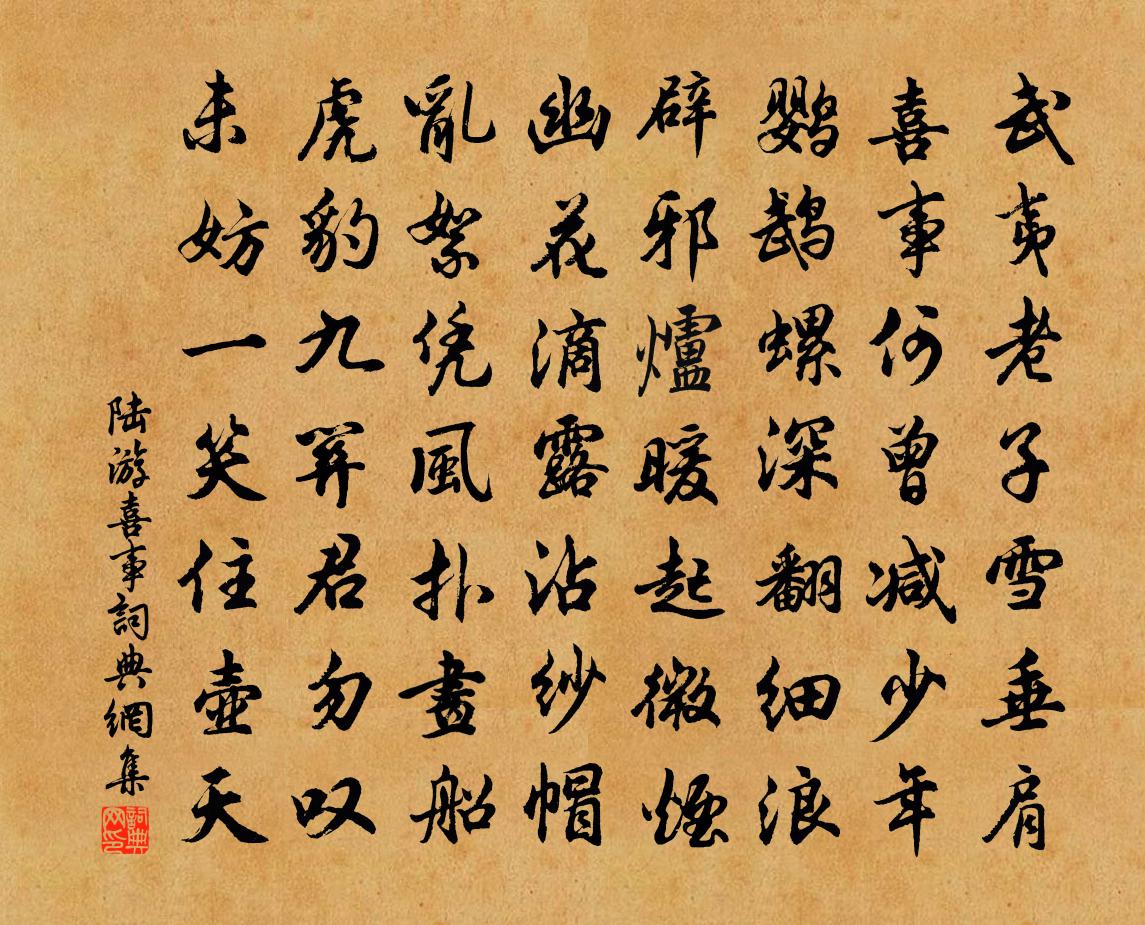 武夷老子雪垂肩
喜事何曾減少年
鸚鵡螺深翻細浪
辟邪爐暖起微煙
幽花滴露沾紗帽
亂絮凭風扑畫船
虎豹九關君勿叹
未妨一笑住壺天
陆游喜事詞典網集
詞典网印